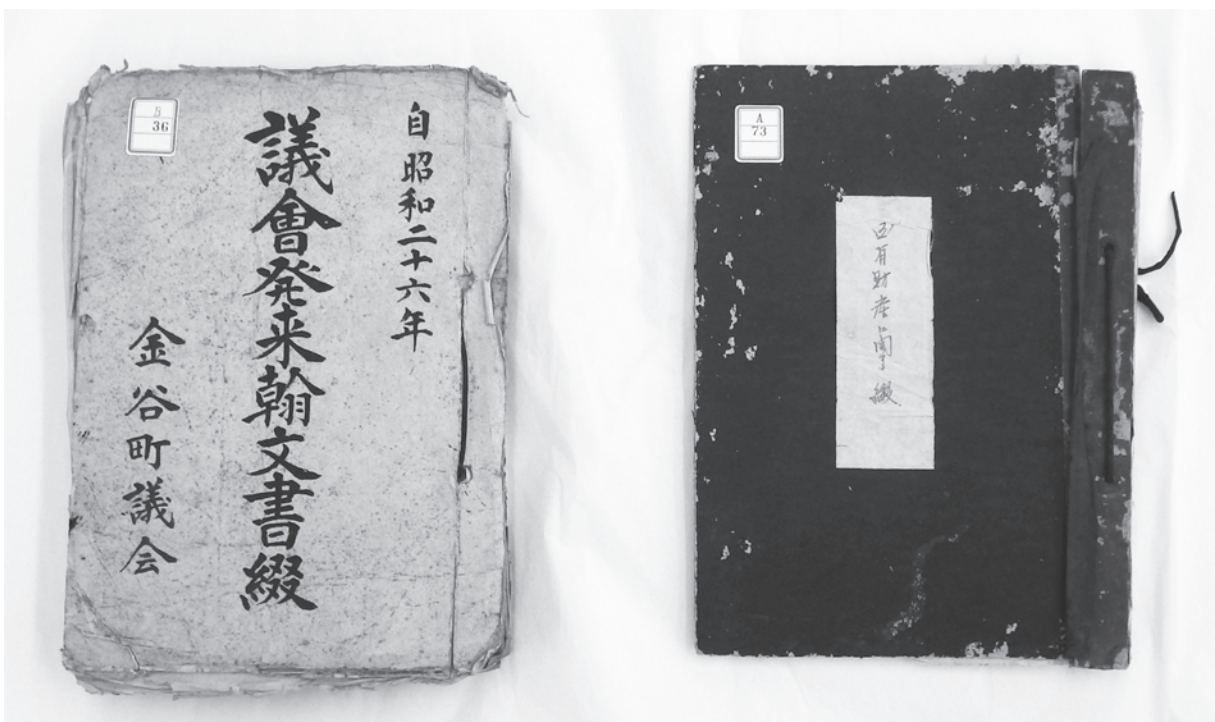 B
36
自昭和二十六年
議會発来翰文書綴
金谷町議会
A
73
区有財産綴